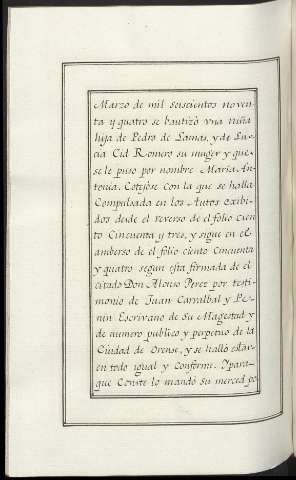 Marzo de mil seiscientos noven-
ta y quatro se bautizó vna niña
hija de Pedro de Lamas, y de Lu-
cia Cid Romero su muger y que
se le puso por nombre Maria An-
tonia. Cotejòse con la que se halla
Compulsada en los Autos exibi-
dos desde el reverso de el folio cien
to Cincuenta y tres, y sigue en el
amberso de el folio ciento Cincuenta
y quatro segun esta firmada de el
citado Don Alonso Perez por testi-
monio de Juan Carvalbal y Pe-
nin Escrivano de Su Magestad y
de numero publico y perpetuo de la
Ciudad de Orense, y se halló estár
en todo igual y Conforme. Ypara
que Conste lo mandó su merced po